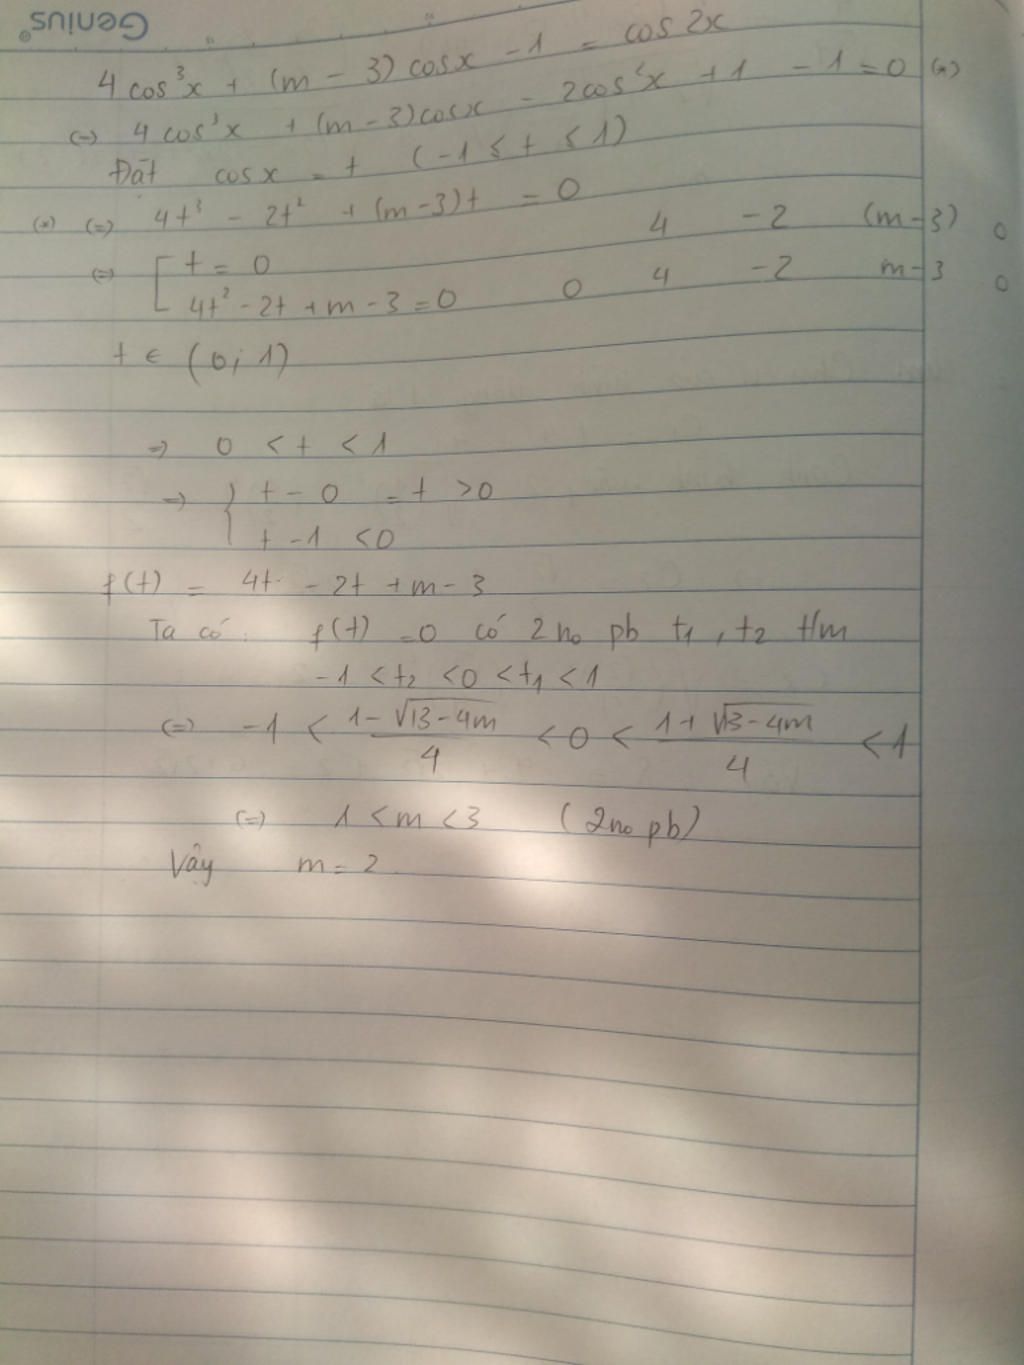 Genius
4 cos³x + (m - 3) cosx - 1 = cos2x
(=) 4 cos³x + (m-3)cosx - 2cos²x + 1 - 1 = 0 (*)
Đặt cosx = t (-1 ≤ t ≤ 1)
(*) (=) 4t³ - 2t² + (m-3)t = 0
4 -2 (m-3) 0
(=) [ t = 0
4t² - 2t + m - 3 = 0
0 4 -2 m-3 0
t ∈ (0; 1)
=) 0 < t < 1
=) { t - 0 = t > 0
t - 1 < 0
f(t) = 4t² - 2t + m - 3
Ta có: f(t) = 0 có 2 no pb t₁, t₂ t/m
-1 < t₂ < 0 < t₁ < 1
(=) -1 < (1 - √13 - 4m)/4 < 0 < (1 + √13 - 4m)/4 < 1
(=) 1 < m < 3 (2no pb)
Vậy m = 2